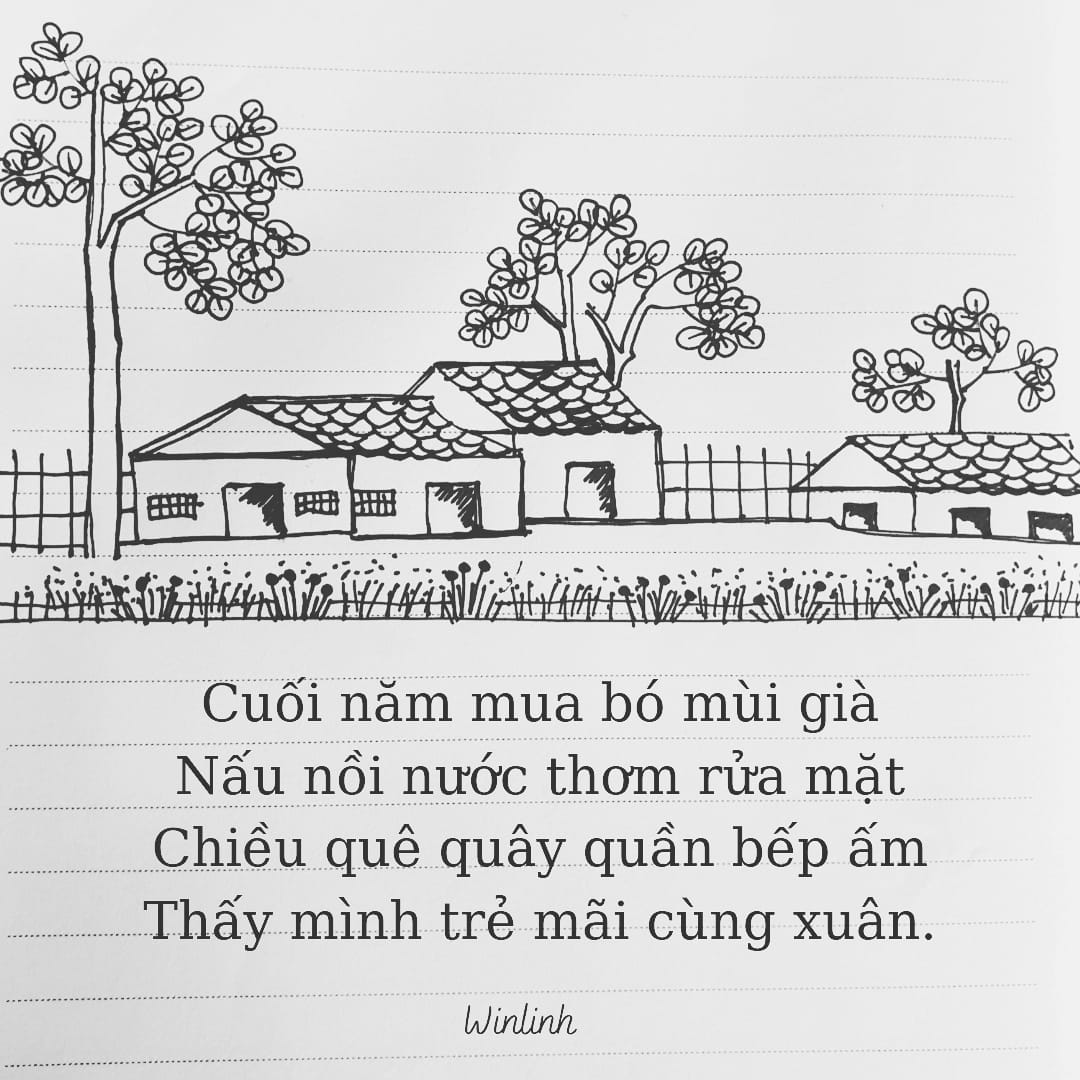 Cuối năm mua bó mùi già
Nấu nồi nước thơm rửa mặt
Chiều quê quây quần bếp ấm
Thấy mình trẻ mãi cùng xuân.
Winlinh